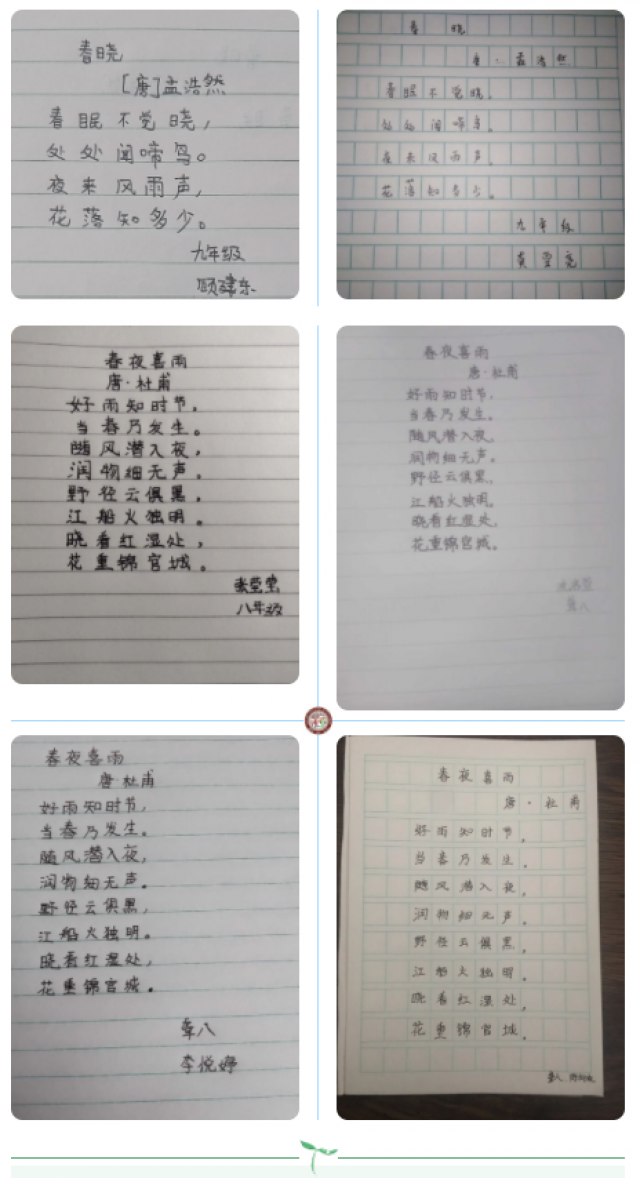 春晓
[唐]孟浩然
春眠不觉晓,
处处闻啼鸟。
夜来风雨声,
花落知多少。
九年级
顾建东
春晓
孟浩然
春眠不觉晓。
处处闻啼鸟。
夜来风雨声。
花落知多少。
九年级
春夜喜雨
唐·杜甫
好雨知时节。
当春乃发生。
随风潜入夜,
润物细无声。
野径云俱黑,
江船火独明。
晓看红湿处,
花重锦官城。
八年级
春夜喜雨
唐·杜甫
好雨知时节,
当春乃发生。
随风潜入夜,
润物细无声。
野径云俱黑,
江船火独明。
晓看红湿处,
花重锦官城。
春夜喜雨
唐·杜甫
好雨知时节,
当春乃发生。
随风潜入夜,
润物细无声。
野径云俱黑,
江船火独明。
晓看红湿处,
花重锦官城。
聋八
李悦婷
春夜喜雨
唐·杜甫
好雨知时节,
当春乃发生。
随风潜入夜,
润物细无声。
野径云俱黑,
江船火独明。
晓看红湿处,
花重锦官城。